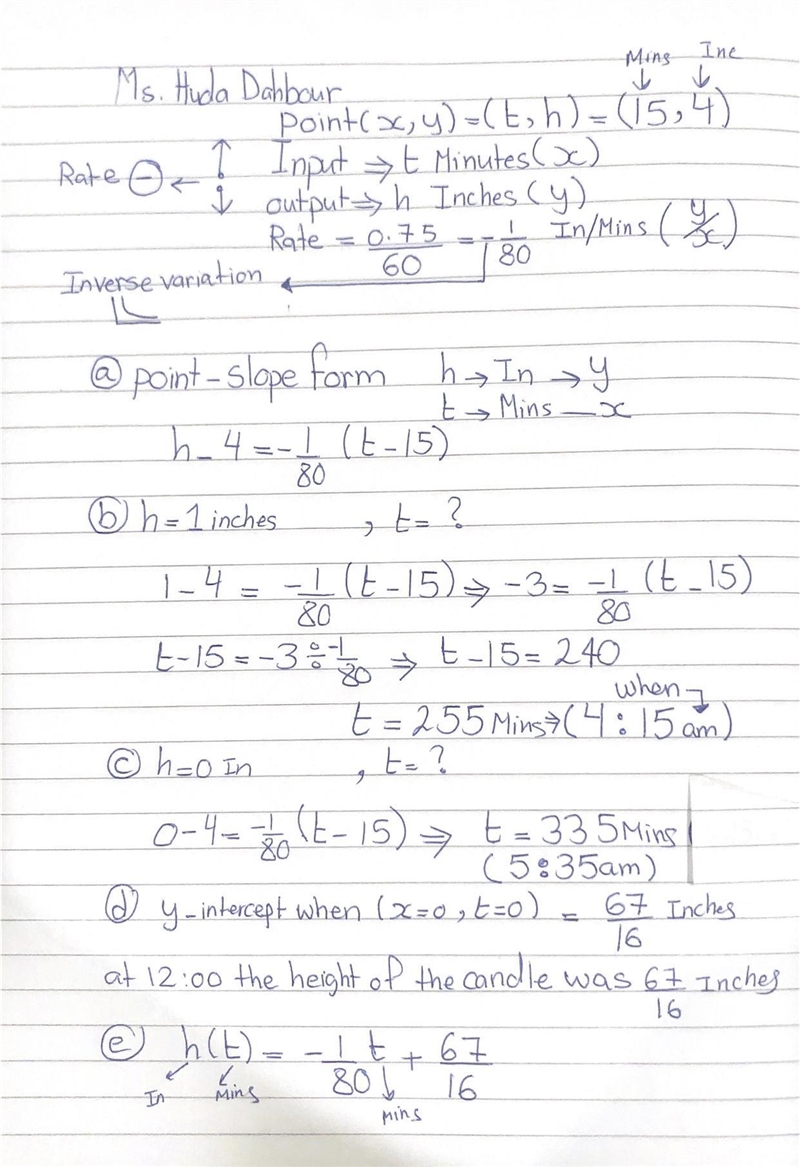 Mins Inc
Ms. Huda Dahbour
Point(x,y)=(t,h)=(15,4)
Rate ⊖ ← ↑ Input ⇒ t Minutes(x)
↓ output ⇒ h Inches (y)
Rate = 0.75/60 = -1/80 In/Mins (y/x)
Inverse variation
ⓐ point-slope form h → In → y
t → Mins — x
h - 4 = -1/80 (t - 15)
ⓑ h = 1 inches , t = ?
1 - 4 = -1/80 (t - 15) ⇒ -3 = -1/80 (t - 15)
t - 15 = -3 ÷ -1/80 ⇒ t - 15 = 240
when
t = 255 Mins ⇒ (4:15 am)
ⓒ h = 0 In , t = ?
0 - 4 = -1/80 (t - 15) ⇒ t = 335 Mins
(5:35am)
ⓓ y-intercept when (x=0, t=0) = 67/16 Inches
at 12:00 the height of the candle was 67/16 Inches
ⓔ h(t) = -1/80 t + 67/16
In Mins mins